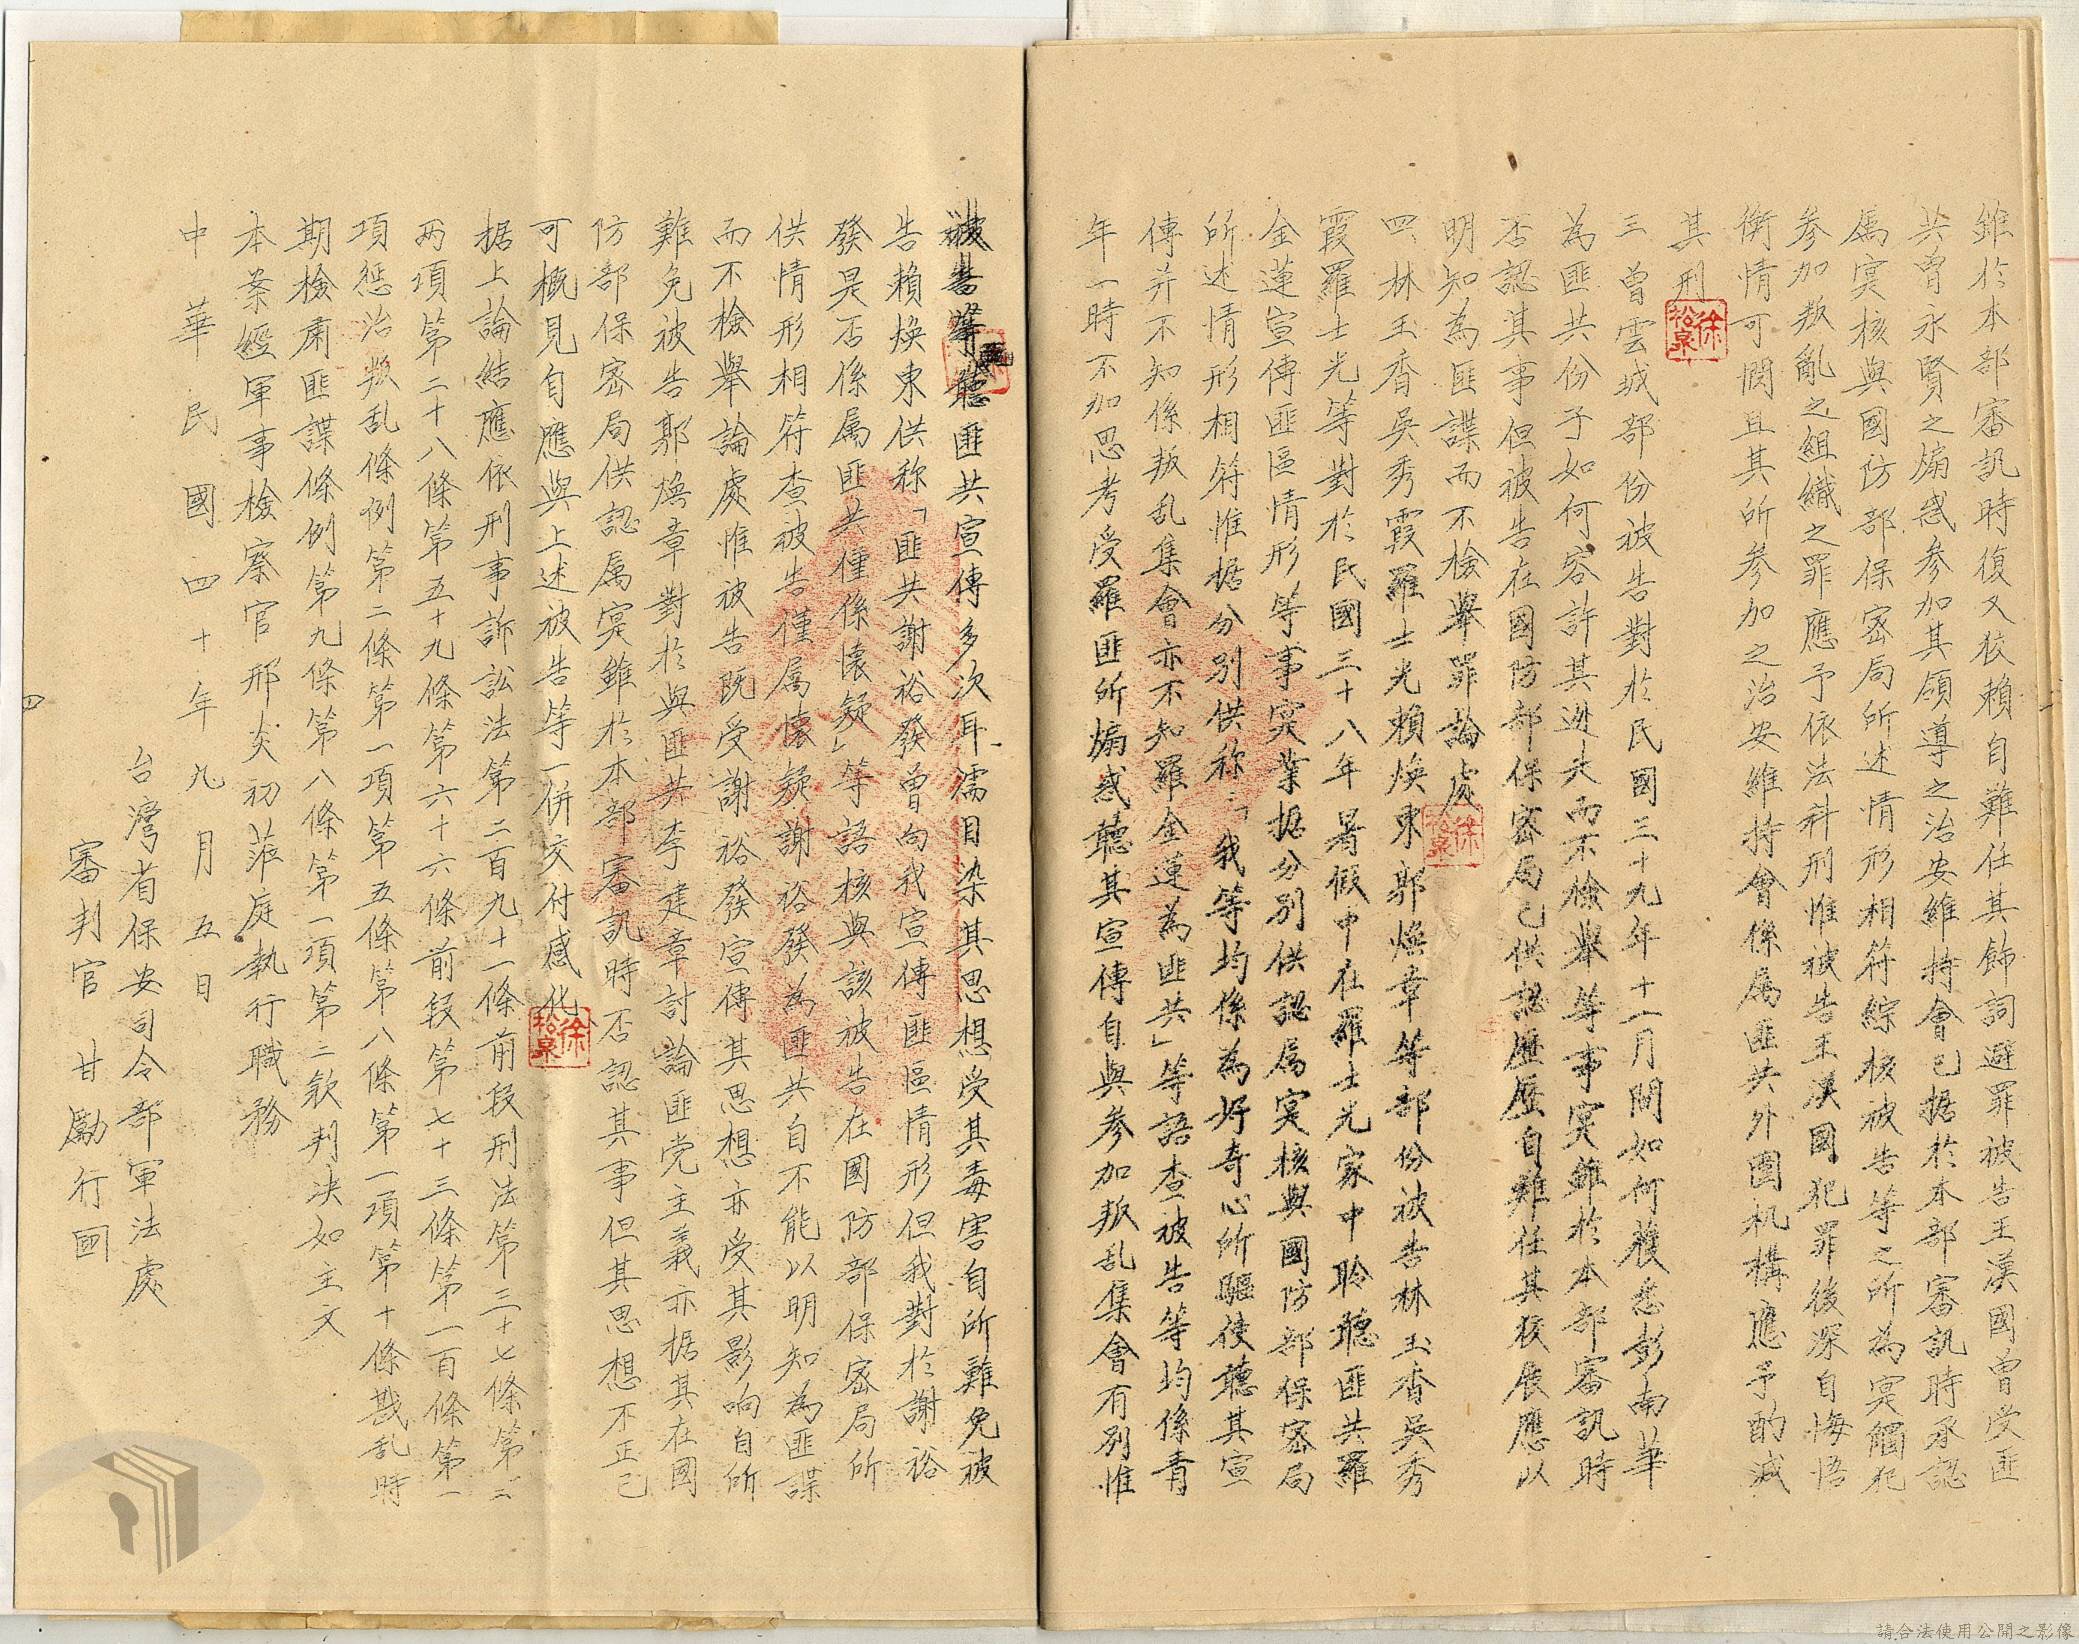 雖於本部審訊時復又狡賴自難任其飾詞避罪被告王漢國曾受匪
共曾永賢之煽惑參加其領導之治安維持會已据於本部審訊時承認
属寔核與國防部保密局所述情形相符綜核被告等之所為寔觸犯
參加叛亂之組織之罪應予依法科刑惟被告王漢國犯罪後深自悔悟
衡情可憫且其所參加之治安維持會係属匪共外圍机構應予酌减
其刑
徐松泉
三曾雲城部份被告對於民國三十九年十一月間如何獲悉彭南華
為匪共份子如何容許其進夫而不檢舉等事寔雖於本部審訊時
否認其事但被告在國防部保密局已供認歷歷自難任其狡展應以
明知為匪諜而不檢舉罪論處
徐松泉
四林玉香吳秀霞羅士光賴煥東郭煥章等部份被告林玉香吳秀
霞羅士光等對於民國三十八年暑假中在羅士光家中聆聽匪共羅
金蓮宣傳匪區情形等事寔業据分別供認属寔核與國防部保密局
所述情形相符惟据分別供称：「我等均係為好奇心所驅使聽其宣
傳并不知係叛乱集會亦不知羅金蓮為匪共」等語查被告等均係青
年一時不加思考受羅匪所煽惑聽其宣傳自與參加叛乱集會有別惟
被告等聽匪共宣傳多次耳濡目染其思想受其毒害自所難免被
告賴煥東供称「匪共謝裕發曾向我宣傳匪區情形但我對於謝裕
發是否係属匪共僅係懷疑」等語核與該被告在國防部保密局所
供情形相符查被告僅属懷疑謝裕發為匪共自不能以明知為匪諜
而不檢舉論處惟被告既受謝裕發宣傳其思想亦受其影响自所
難免被告郭煥章對於與匪共李建章討論匪党主義亦据其在國
防部保密局供認属寔雖於本部審訊時否認其事但其思想不正已
可概見自應與上述被告等一併交付感化
徐松泉
据上論結應依刑事訴訟法第二百九十一條前段刑法第三十七條第二
兩項第二十八條第五十九條第六十六條前段第七十三條第一百條第一
項惩治叛乱條例第二條第一項第五條第八條第一項第十條戡乱時
期檢肅匪諜條例第九條第八條第一項第二欵判决如主文
本案經軍事檢察官邢炎初蒞庭執行職務
中華民國四十年九月五日
台灣省保安司令部軍法處
審判官甘勵行國
四
請合法使用公開之影像